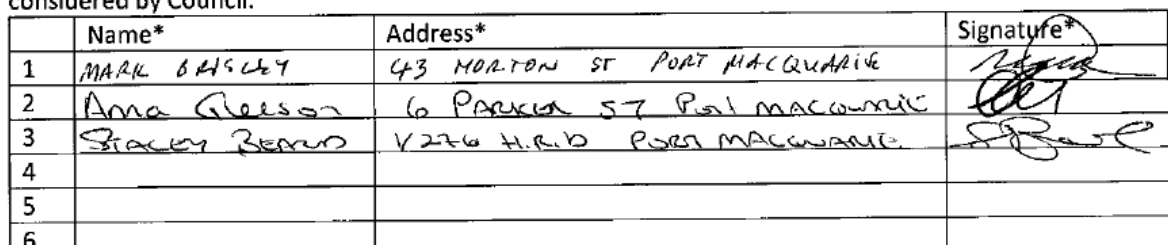 considered by Council.
Name* Address* Signature*
1 MARK 43 MORTON ST PORT MACQUARIE
2 Anna Gleeson 6 PARKER ST Port MACQUARIE
3 STACEY BEARD H.R.D PORT MACQUARIE
4
5
6